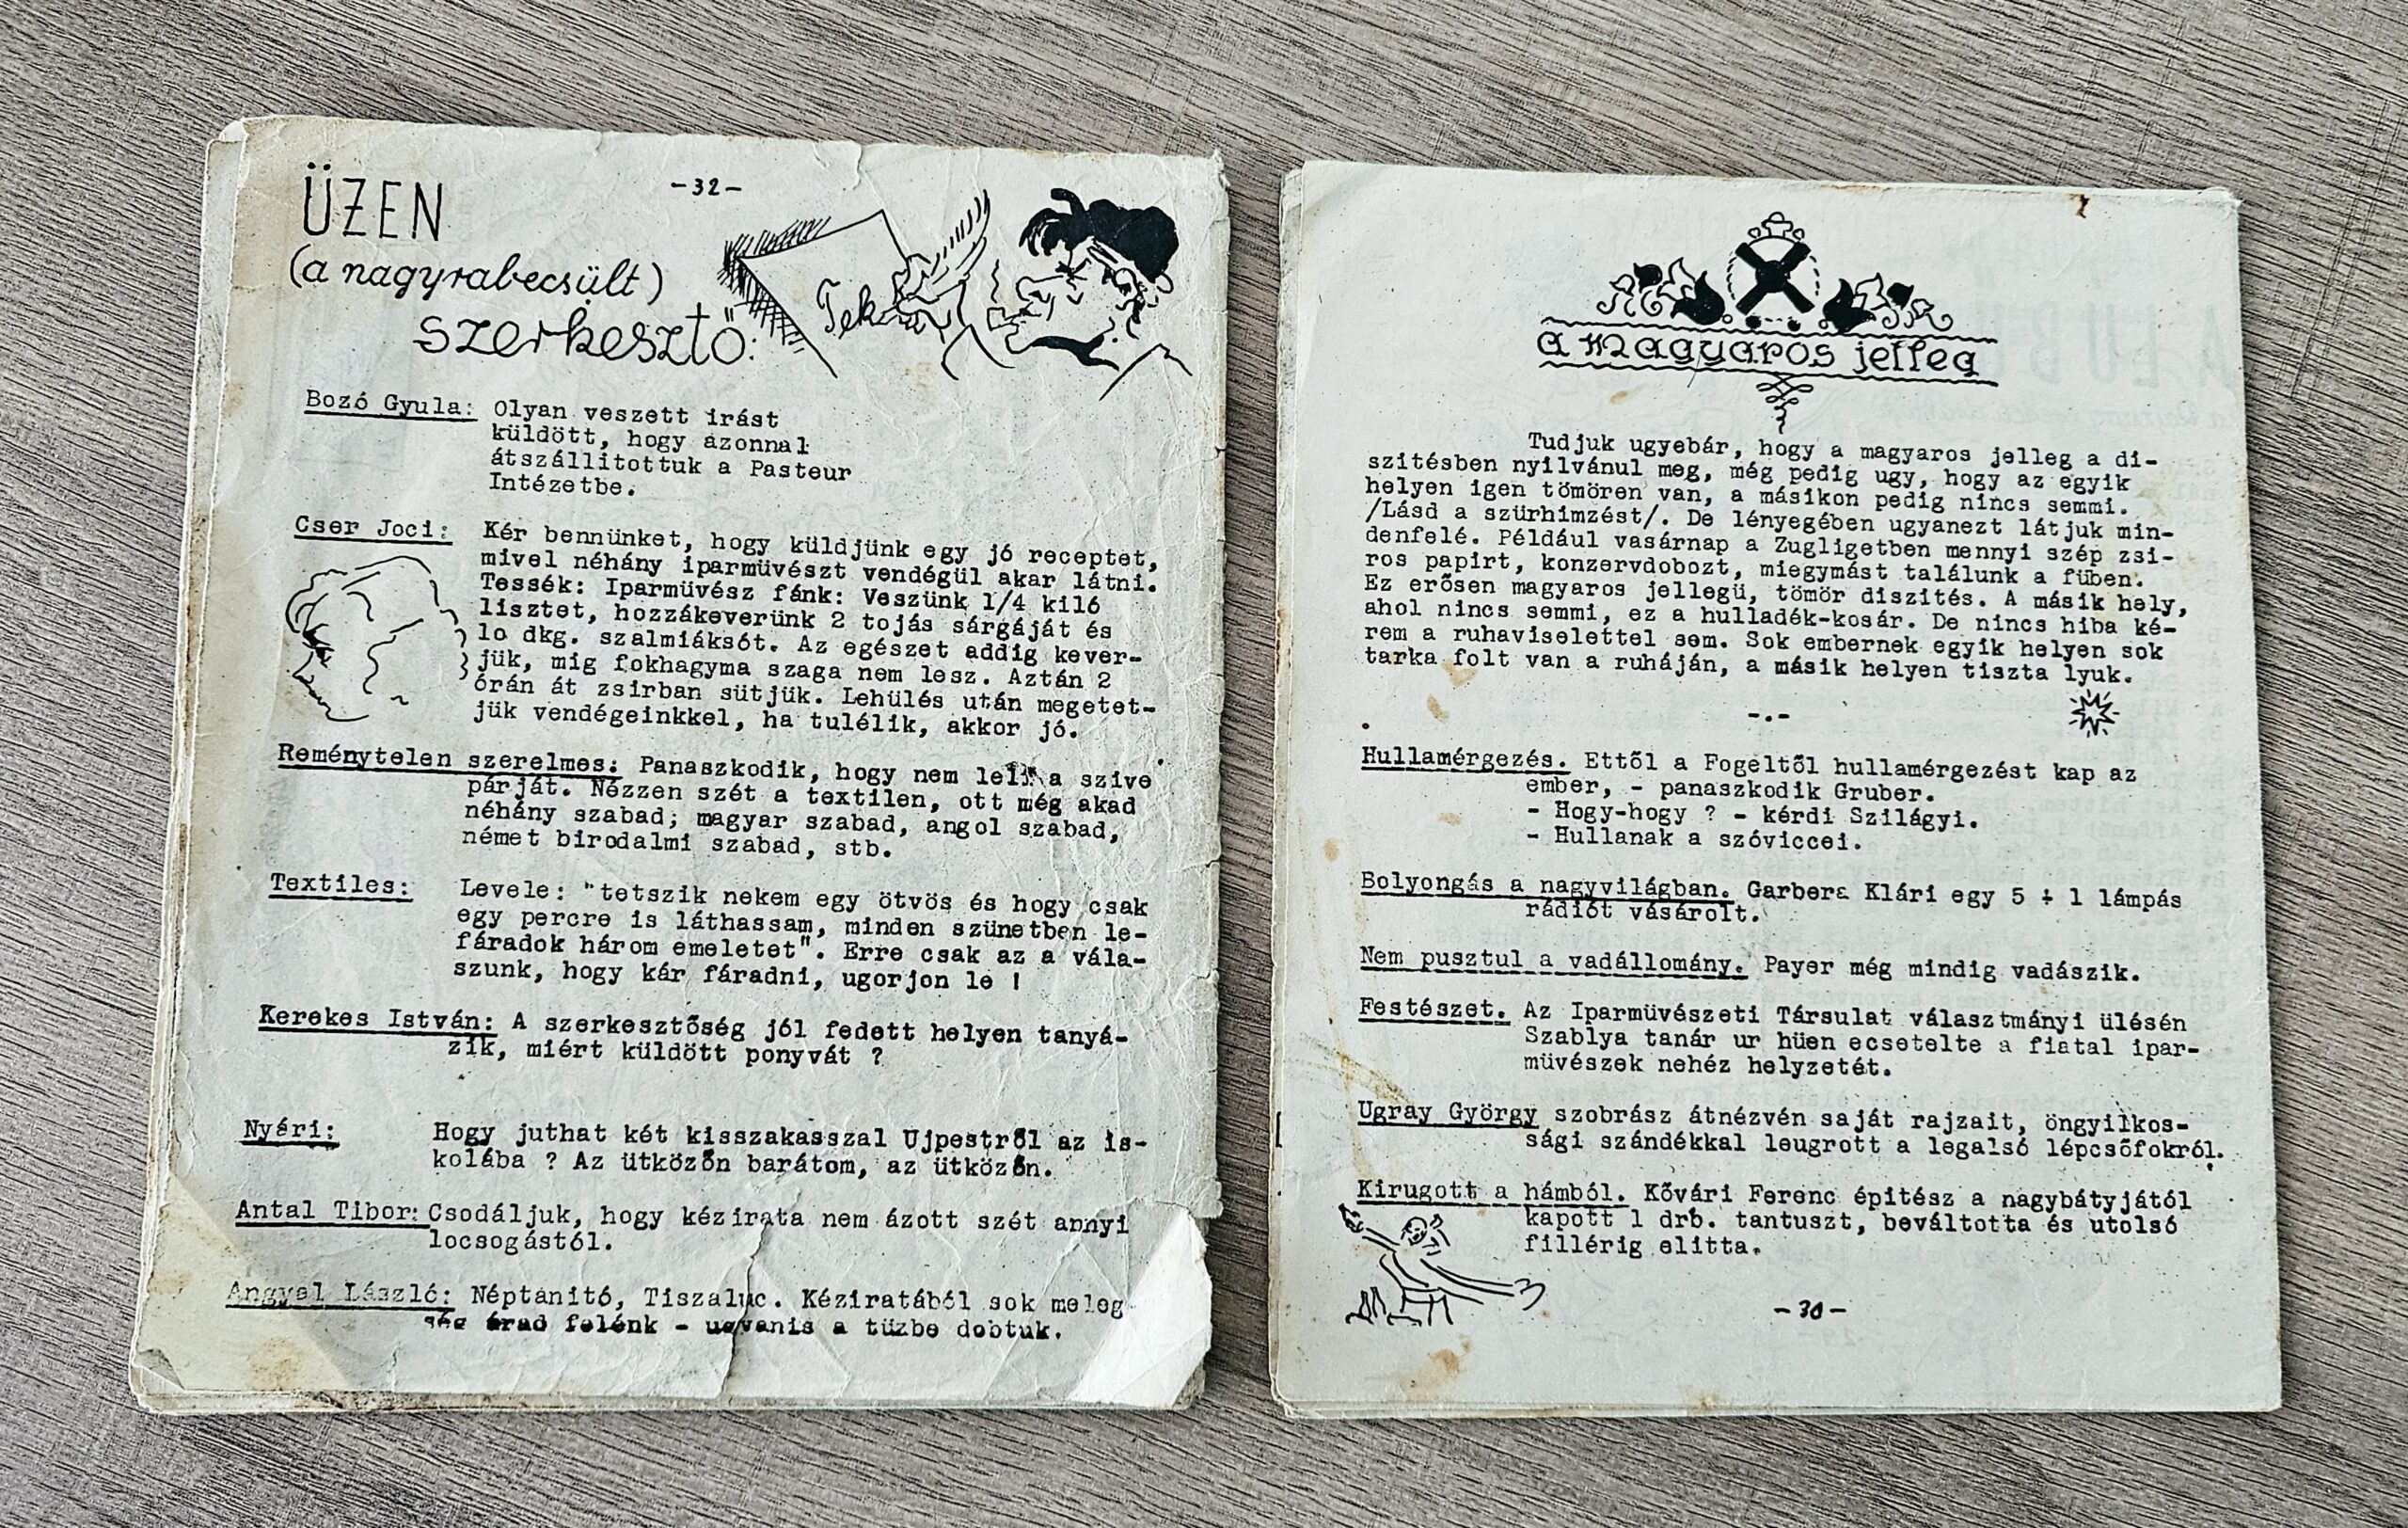 -32-
ÜZEN
(a nagyrabecsült)
szerkesztő:
Tek
Bozó Gyula: Olyan veszett irást
küldött, hogy azonnal
átszállitottuk a Pasteur
Intézetbe.
Cser Joci: Kér bennünket, hogy küldjünk egy jó receptet,
mivel néhány iparmüvészt vendégül akar látni.
Tessék: Iparmüvész fánk: Veszünk 1/4 kiló
lisztet, hozzákeverünk 2 tojás sárgáját és
lo dkg. szalmiáksót. Az egészet addig kever-
jük, mig fokhagyma szaga nem lesz. Aztán 2
órán át zsirban sütjük. Lehülés után megetet-
jük vendégeinkkel, ha tulélik, akkor jó.
Reménytelen szerelmes: Panaszkodik, hogy nem leli a szive
párját. Nézzen szét a textilen, ott még akad
néhány szabad; magyar szabad, angol szabad,
német birodalmi szabad, stb.
Textiles: Levele: "tetszik nekem egy ötvös és hogy csak
egy percre is láthassam, minden szünetben le-
fáradok három emeletet". Erre csak az a vála-
szunk, hogy kár fáradni, ugorjon le !
Kerekes István: A szerkesztőség jól fedett helyen tanyá-
zik, miért küldött ponyvát ?
Nyári: Hogy juthat két kisszakasszal Ujpestről az is-
kolába ? Az ütközőn barátom, az ütközőn.
Antal Tibor: Csodáljuk, hogy kézirata nem ázott szét annyi
locsogástól.
Angyal László: Néptanitó, Tiszaluc. Kéziratából sok meleg-
ség árad felénk - ugyanis a tüzbe dobtuk.
a magyaros jelleg
Tudjuk ugyebár, hogy a magyaros jelleg a di-
szitésben nyilvánul meg, még pedig ugy, hogy az egyik
helyen igen tömören van, a másikon pedig nincs semmi.
/Lásd a szürhimzést/. De lényegében ugyanezt látjuk min-
denfelé. Például vasárnap a Zugligetben mennyi szép zsi-
ros papirt, konzervdobozt, miegymást találunk a füben.
Ez erősen magyaros jellegü, tömör diszités. A másik hely,
ahol nincs semmi, ez a hulladék-kosár. De nincs hiba ké-
rem a ruhaviselettel sem. Sok embernek egyik helyen sok
tarka folt van a ruháján, a másik helyen tiszta lyuk.
-.-
Hullamérgezés. Ettől a Fogeltől hullamérgezést kap az
ember, - panaszkodik Gruber.
- Hogy-hogy ? - kérdi Szilágyi.
- Hullanak a szóviccei.
Bolyongás a nagyvilágban. Garbera Klári egy 5 + 1 lámpás
rádiót vásárolt.
Nem pusztul a vadállomány. Payer még mindig vadászik.
Festészet. Az Iparmüvészeti Társulat választmányi ülésén
Szablya tanár ur hüen ecsetelte a fiatal ipar-
müvészek nehéz helyzetét.
Ugray György szobrász átnézvén saját rajzait, öngyilkos-
sági szándékkal leugrott a legalsó lépcsőfokról.
Kirugott a hámból. Kővári Ferenc épitész a nagybátyjától
kapott 1 drb. tantuszt, beváltotta és utolsó
fillérig elitta.
-30-